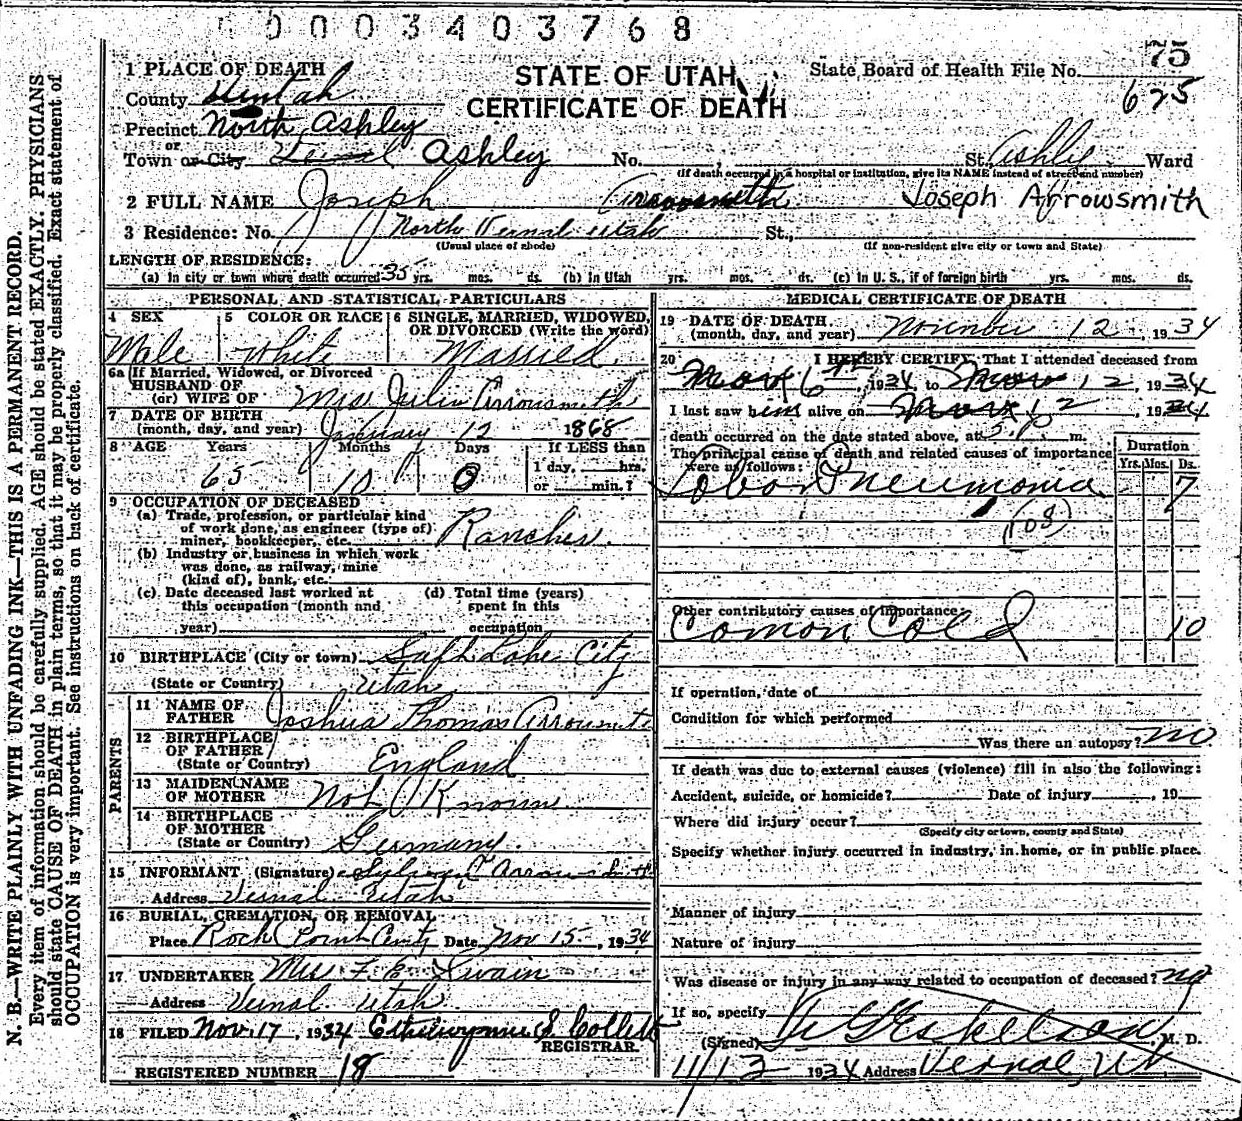 0003403768
75
625
1 PLACE OF DEATH
STATE OF UTAH
CERTIFICATE OF DEATH
State Board of Health File No.
County Uintah
Precinct North Ashley
or
Town or City Vernal Ashley No. , St, Ashley Ward
(If death occurred in a hospital or institution, give its NAME instead of street and number)
2 FULL NAME Joseph Arrowsmith Joseph Arrowsmith
3 Residence: No. North Vernal Utah St.,
(Usual place of abode) (If non-resident give city or town and State)
LENGTH OF RESIDENCE:
(a) In city or town where death occurred 35 yrs. mos. ds. (b) In Utah yrs. mos. ds. (c) In U. S., if of foreign birth yrs. mos. ds.
PERSONAL AND STATISTICAL PARTICULARS
4 SEX 5 COLOR OR RACE 6 SINGLE, MARRIED, WIDOWED,
OR DIVORCED (Write the word)
Male White Married
6a If Married, Widowed, or Divorced
HUSBAND OF
(or) WIFE OF Mrs Julia Arrowsmith
7 DATE OF BIRTH
(month, day, and year) January 12 1868
8 AGE Years Months Days If LESS than
65 10 0 1 day, hrs.
or min. ?
9 OCCUPATION OF DECEASED
(a) Trade, profession, or particular kind
of work done, as engineer (type of)
miner, bookkeeper, etc. Rancher.
(b) Industry or business in which work
was done, as railway, mine
(kind of), bank, etc.
(c) Date deceased last worked at (d) Total time (years)
this occupation (month and spent in this
year) occupation
10 BIRTHPLACE (City or town) Salt Lake City
(State or Country) Utah
PARENTS
11 NAME OF
FATHER Joshua Thomas Arrowsmith
12 BIRTHPLACE
OF FATHER
(State or Country) England
13 MAIDEN NAME
OF MOTHER Not Known
14 BIRTHPLACE
OF MOTHER
(State or Country) Germany.
15 INFORMANT (Signature) Arrowsmith
Address Vernal Utah
16 BURIAL, CREMATION, OR REMOVAL
Place Rock Point Date Nov 15 , 1934
17 UNDERTAKER Mrs F E Swain
Address Vernal Utah
18 FILED Nov. 17, 1934 S. Collett
REGISTRAR.
REGISTERED NUMBER 18
MEDICAL CERTIFICATE OF DEATH
19 DATE OF DEATH
(month, day, and year) November 12, 1934
20 I HEREBY CERTIFY, That I attended deceased from
Nov 6th, 1934 to Nov 12, 1934
I last saw him alive on Nov 12, 1934
death occurred on the date stated above, at 5 P. m.
The principal cause of death and related causes of importance
were as follows:
Duration
Yrs. Mos. Ds.
Lobar Pneumonia 7
(108)
Other contributory causes of importance:
Comon Cold 10
If operation, date of
Condition for which performed
Was there an autopsy? no.
If death was due to external causes (violence) fill in also the following:
Accident, suicide, or homicide? Date of injury , 19
Where did injury occur?
(Specify city or town, county and State)
Specify whether injury occurred in industry, in home, or in public place.
Manner of injury
Nature of injury
Was disease or injury in any way related to occupation of deceased? no
If so, specify
(Signed) G Eskelson, M. D.
11/13 1934 Address Vernal, Ut
N. B.—WRITE PLAINLY WITH UNFADING INK—THIS IS A PERMANENT RECORD.
Every item of information should be carefully supplied. AGE should be stated EXACTLY. PHYSICIANS
should state CAUSE OF DEATH in plain terms, so that it may be properly classified. Exact statement of
OCCUPATION is very important. See instructions on back of certificate.